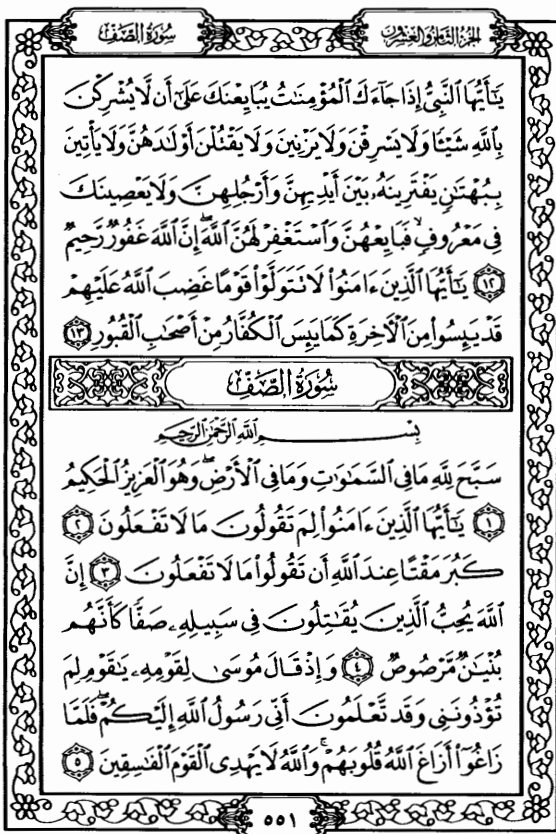 سُورَةُ الصَّفِّ الجُزْءُ الثَّامِنُ وَالعِشْرُونَ
يَٰٓأَيُّهَا ٱلنَّبِىُّ إِذَا جَآءَكَ ٱلْمُؤْمِنَٰتُ يُبَايِعْنَكَ عَلَىٰٓ أَن لَّا يُشْرِكْنَ
بِٱللَّهِ شَيْـًٔا وَلَا يَسْرِقْنَ وَلَا يَزْنِينَ وَلَا يَقْتُلْنَ أَوْلَٰدَهُنَّ وَلَا يَأْتِينَ
بِبُهْتَٰنٍ يَفْتَرِينَهُۥ بَيْنَ أَيْدِيهِنَّ وَأَرْجُلِهِنَّ وَلَا يَعْصِينَكَ
فِى مَعْرُوفٍ ۙ فَبَايِعْهُنَّ وَٱسْتَغْفِرْ لَهُنَّ ٱللَّهَ ۖ إِنَّ ٱللَّهَ غَفُورٌ رَّحِيمٌ
١٢ يَٰٓأَيُّهَا ٱلَّذِينَ ءَامَنُوا۟ لَا تَتَوَلَّوْا۟ قَوْمًا غَضِبَ ٱللَّهُ عَلَيْهِمْ
قَدْ يَئِسُوا۟ مِنَ ٱلْءَاخِرَةِ كَمَا يَئِسَ ٱلْكُفَّارُ مِنْ أَصْحَٰبِ ٱلْقُبُورِ ١٣
سُورَةُ الصَّفِّ
بِسْمِ ٱللَّهِ ٱلرَّحْمَٰنِ ٱلرَّحِيمِ
سَبَّحَ لِلَّهِ مَا فِى ٱلسَّمَٰوَٰتِ وَمَا فِى ٱلْأَرْضِ ۖ وَهُوَ ٱلْعَزِيزُ ٱلْحَكِيمُ
١ يَٰٓأَيُّهَا ٱلَّذِينَ ءَامَنُوا۟ لِمَ تَقُولُونَ مَا لَا تَفْعَلُونَ ٢
كَبُرَ مَقْتًا عِندَ ٱللَّهِ أَن تَقُولُوا۟ مَا لَا تَفْعَلُونَ ٣ إِنَّ
ٱللَّهَ يُحِبُّ ٱلَّذِينَ يُقَٰتِلُونَ فِى سَبِيلِهِۦ صَفًّا كَأَنَّهُم
بُنْيَٰنٌ مَّرْصُوصٌ ٤ وَإِذْ قَالَ مُوسَىٰ لِقَوْمِهِۦ يَٰقَوْمِ لِمَ
تُؤْذُونَنِى وَقَد تَّعْلَمُونَ أَنِّى رَسُولُ ٱللَّهِ إِلَيْكُمْ ۖ فَلَمَّا
زَاغُوٓا۟ أَزَاغَ ٱللَّهُ قُلُوبَهُمْ ۚ وَٱللَّهُ لَا يَهْدِى ٱلْقَوْمَ ٱلْفَٰسِقِينَ ٥
٥٥١